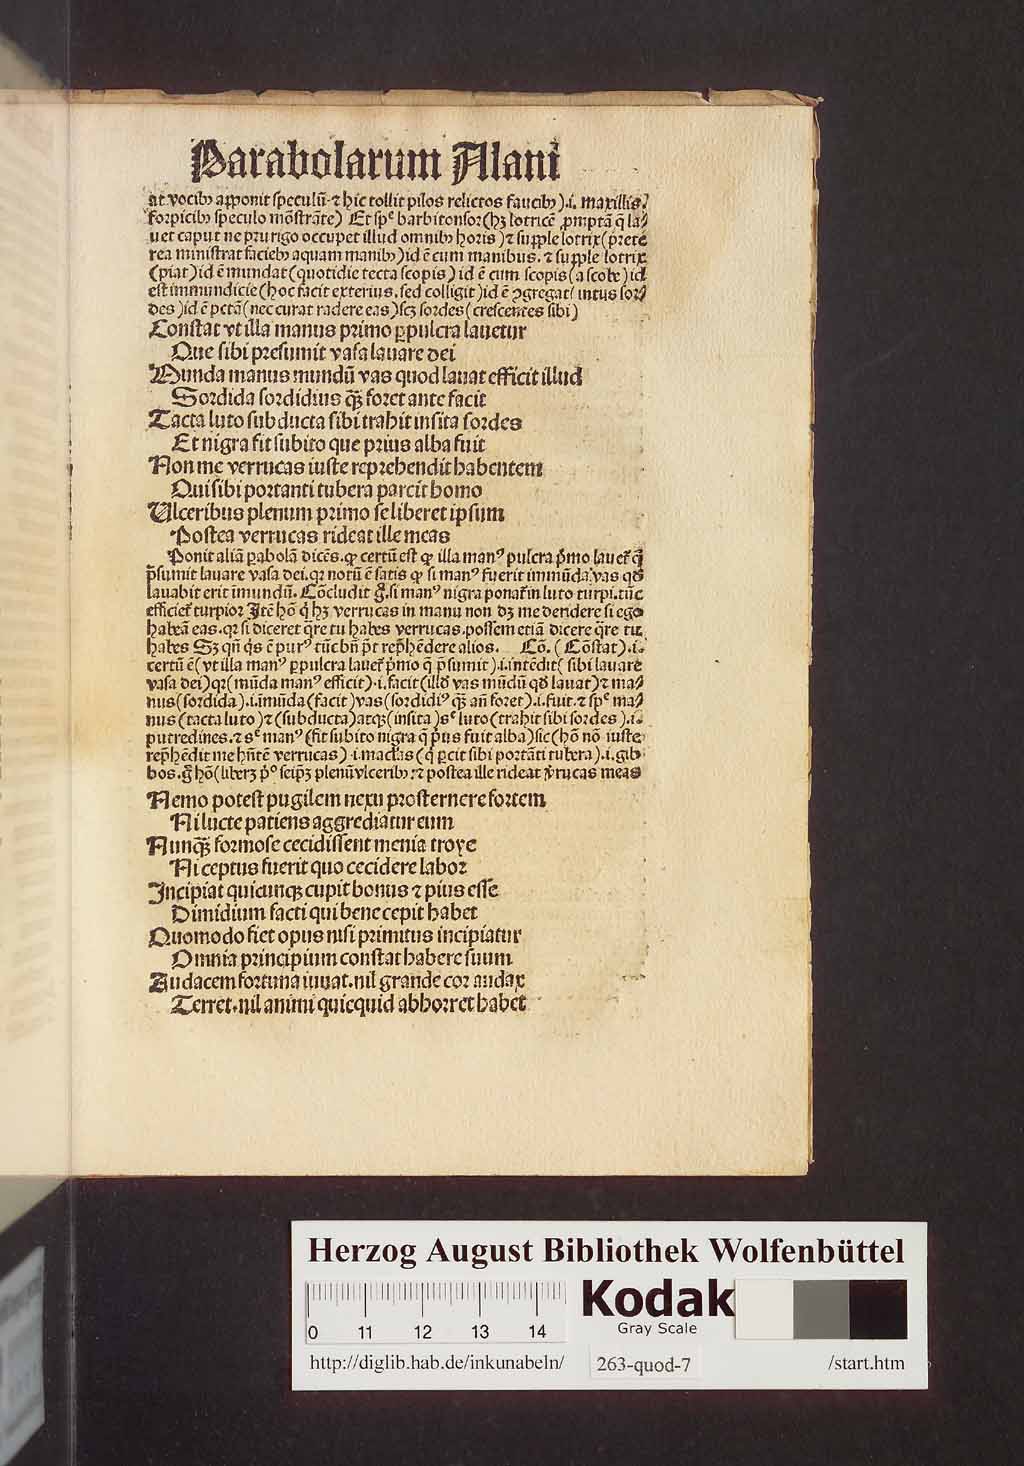 Parabolarum Alani
at vocibꝫ apponit speculū. ⁊ hic tollit pilos relictos faucibꝫ).i. maxillis.
forpicibꝫ speculo mōstrāte) Et spᵉ barbitonsor (hꝫ lotricē ꝓmptā q̄ la⸗
uet caput ne prurigo occupet illud omnibꝫ horis) ⁊ supple lotrix (p̄rete
rea ministrat faciebꝫ aquam manibꝫ) id ē cum manibus. ⁊ supple lotrix
(piat) id ē mundat (quotidie tecta scopis) id ē cum scopis (a scobe) id
est immundicie (hoc facit exterius. sed colligit) id ē ꝯgregat (intus sor⸗
des) id ē pctā (nec curat radere eas) scꝫ sordes (crescentes sibi)
Constat vt illa manus primo ꝑpulcra lauetur
Que sibi presumit vasa lauare dei
Munda manus mundū vas quod lauat efficit illud
Sordida sordidius qꝫ foret ante facit
Tacta luto subducta sibi trahit insita sordes
Et nigra fit subito que prius alba fuit
Non me verrucas iuste reprehendit habentem
Qui sibi portanti tubera parcit homo
Ulceribus plenum primo se liberet ipsum
Postea verrucas rideat ille meas
Ponit aliā ꝑabolā dicēs. ꝙ certū est ꝙ illa manꝰ pulcra p̄mo lauet᷑ q̄
p̄sumit lauare vasa dei. qꝛ notū ē satis ꝙ si manꝰ fuerit immūda. vas qd̄
lauabit erit imundū. Cōcludit g̊. si manꝰ nigra ponat᷑ in luto turpi. tūc
efficiet᷑ turpior Itē hō q̄ hꝫ verrucas in manu non dꝫ me deridere si ego
habeā eas. qꝛ si diceret q̄re tu habes verrucas. possem etiā dicere q̄re tu
habes Sꝫ qn̄ q̇s ē purꝰ tūc bn̄ p̄t rep̄hēdere alios. Cō. (Cōstat) .i.
certū ē (vt illa manꝰ ꝑpulcra lauet᷑ p̄mo q̄ p̄sumit) .i. intēdit (sibi lauare
vasa dei) qꝛ (mūda manꝰ efficit) .i. facit (illd̄ vas mūdū qd̄ lauat) ⁊ ma⸗
nus (sordida) .i. imūda (facit) vas (sordidiꝰ qꝫ an̄ foret) .i. fuit. ⁊ spᵉ ma⸗
nus (tacta luto) ⁊ (subducta) atqꝫ (insita) sᵉ luto (trahit sibi sordes) .i.
putredines. ⁊ sᵉ manꝰ (fit subito nigra q̄ p̄us fuit alba) sic (hō nō iuste
rep̄hēdit me hn̄tē verrucas) .i. maclas (q̇ ꝑcit sibi portāti tubera) .i. gib
bos. g̊ hō (liberꝫ p̄ᵒ seip̄ꝫ plenū vlceribꝫ: ⁊ postea ille rideat v̄rucas meas
Nemo potest pugilem nexu prosternere fortem
Ni lucte patiens aggrediatur eum
Nunqꝫ formose cecidissent menia troye
Ni ceptus fuerit quo cecidere labor
Incipiat quicunqꝫ cupit bonus ⁊ pius esse
Dimidium facti qui bene cepit habet
Quomodo fiet opus nisi primitus incipiatur
Omnia principium constat habere suum
Audacem fortuna iuuat. nil grande cor audax
Terret. nil animi quicquid abhorret habet
Herzog August Bibliothek Wolfenbüttel
0 11 12 13 14
Kodak
Gray Scale
http://diglib.hab.de/inkunabeln/ 263-quod-7 /start.htm